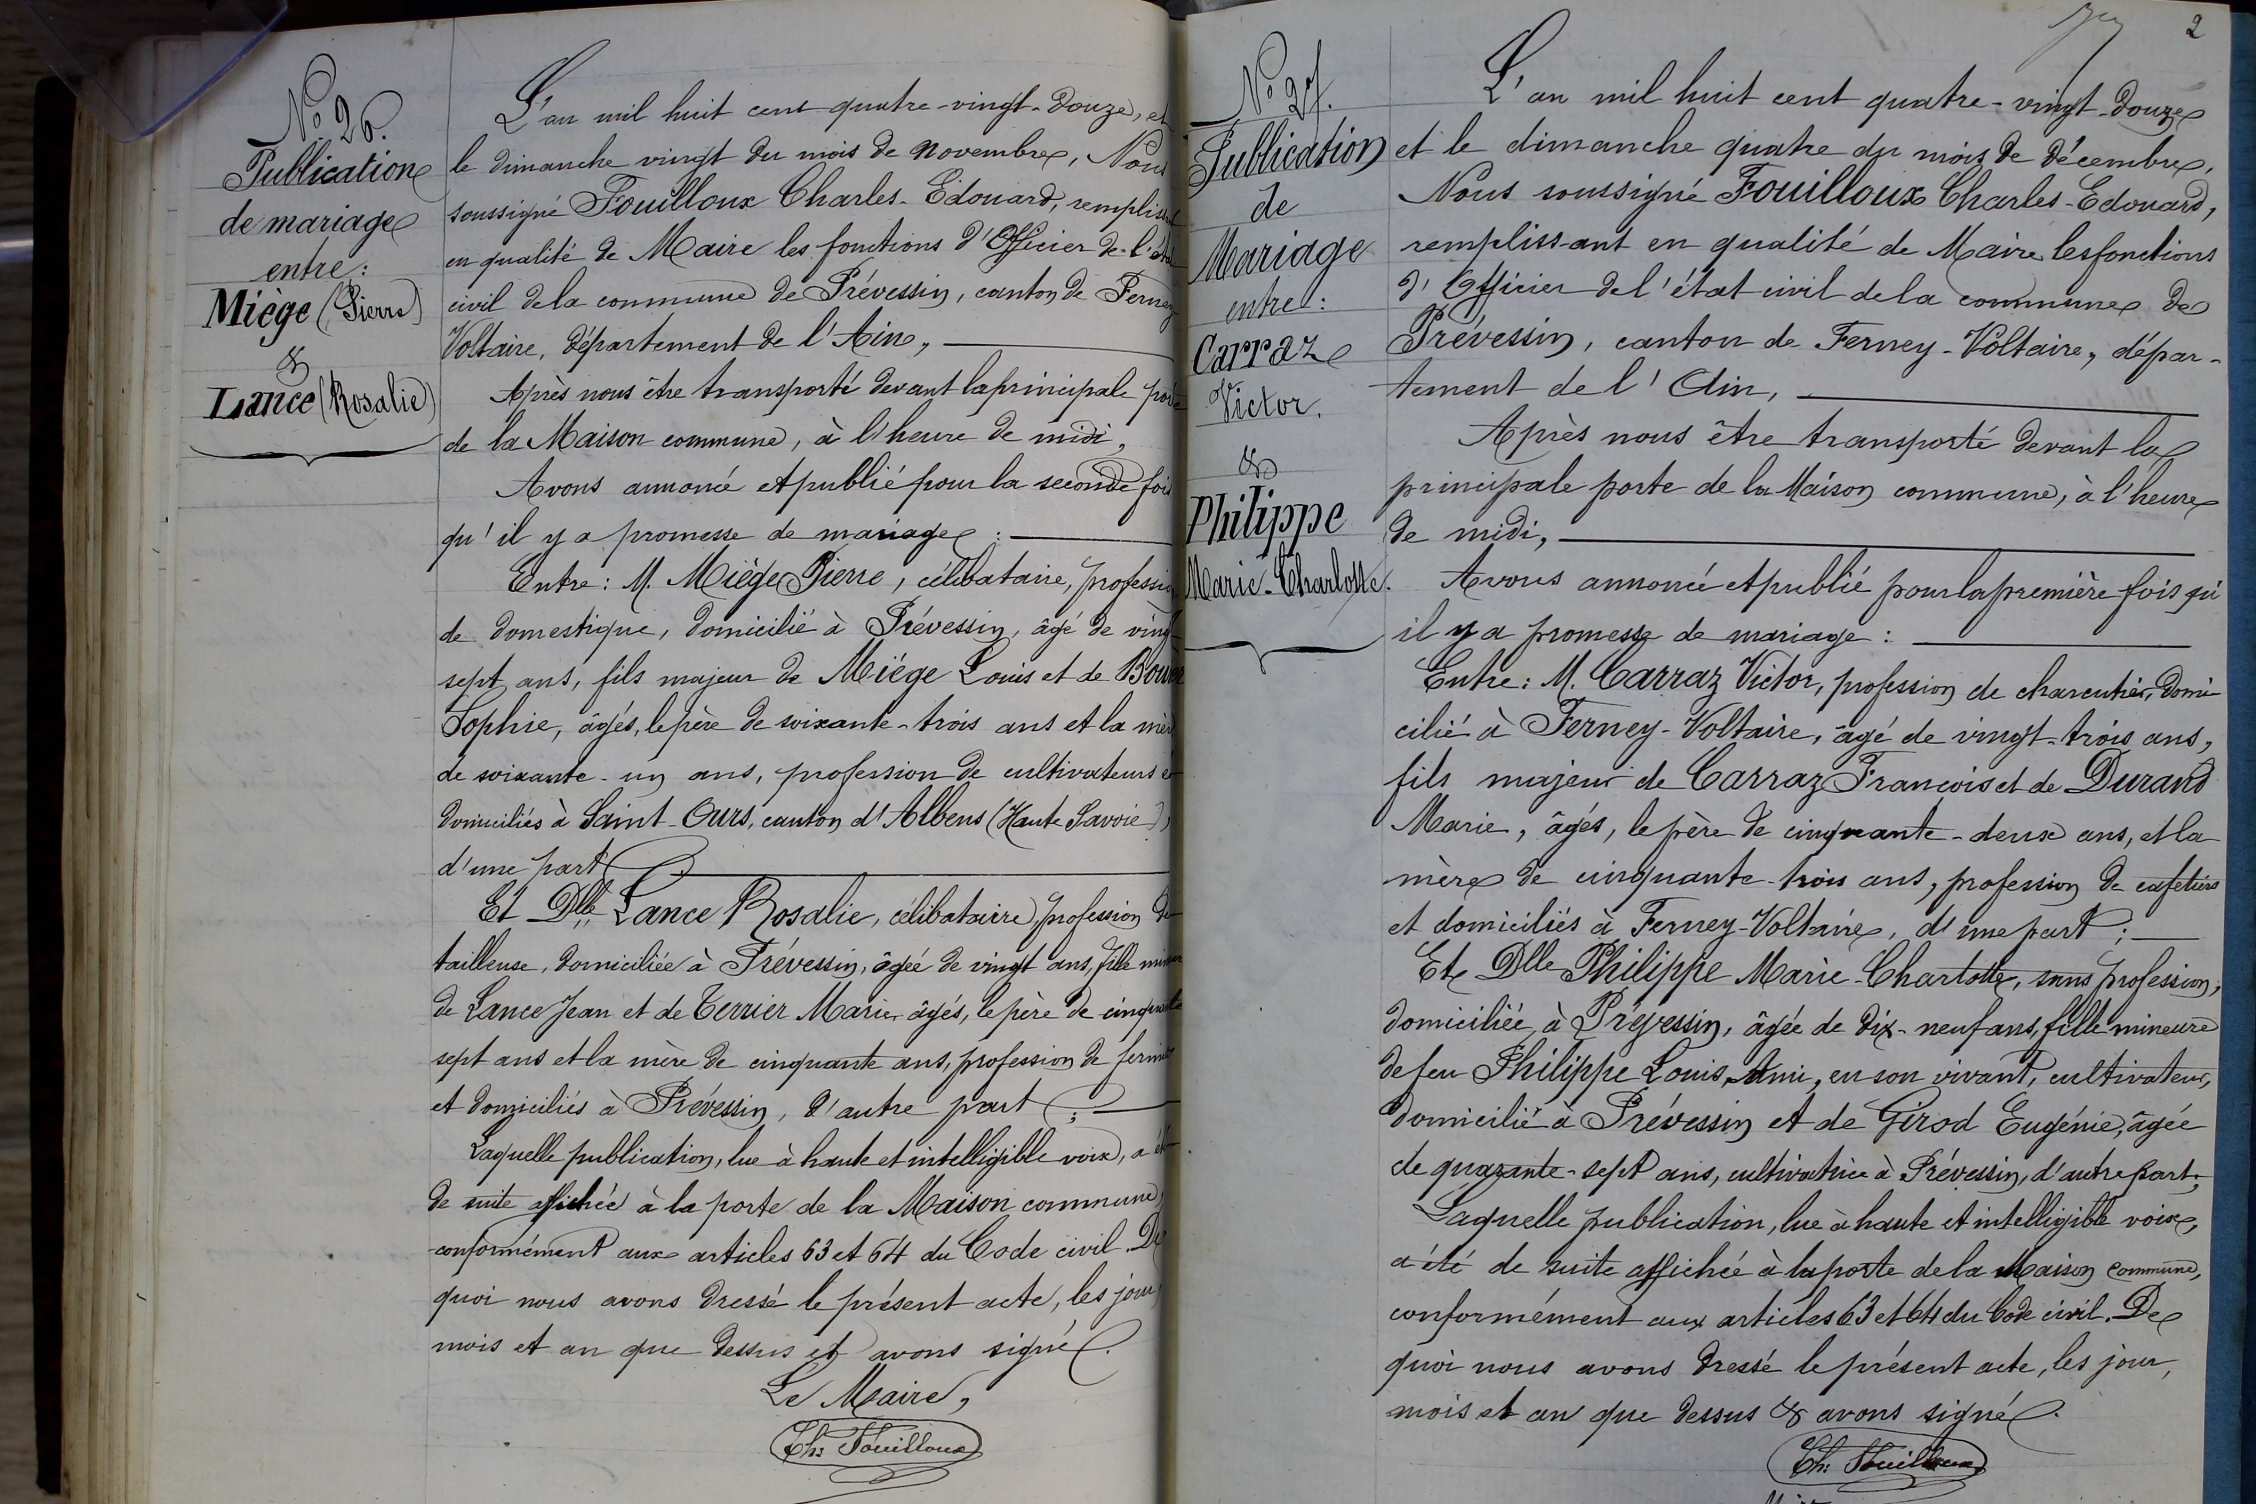 No 26.
Publication
de mariage
entre :
Miège (Pierre)
&
Lance (Rosalie)
L'an mil huit cent quatre-vingt-douze, et
le dimanche vingt du mois de novembre, Nous
soussigné Fouilloux Charles-Edouard, remplissant
en qualité de Maire les fonctions d'Officier de l'état
civil de la commune de Prévessin, canton de Ferney
Voltaire, département de l'Ain,
Après nous être transporté devant la principale porte
de la Maison commune, à l'heure de midi,
Avons annoncé et publié pour la seconde fois
qu'il y a promesse de mariage :
Entre : M. Miège Pierre, célibataire, profession
de domestique, domicilié à Prévessin, âgé de vingt
sept ans, fils majeur de Miège Louis et de
Sophie, âgés, le père de soixante-trois ans et la mère
de soixante-un ans, profession de cultivateurs et
domiciliés à Saint-Ours, canton d'Albens (Haute Savoie),
d'une part
Et Dlle Lance Rosalie, célibataire, profession de
tailleuse, domiciliée à Prévessin, âgée de vingt ans, fille mineure
de Lance Jean et de Terrier Marie, âgés, le père de cinquante
sept ans et la mère de cinquante ans, profession de fermiers
et domiciliés à Prévessin, d'autre part ;
Laquelle publication, lue à haute et intelligible voix, a été
de suite affichée à la porte de la Maison commune,
conformément aux articles 63 et 64 du Code civil. De
quoi nous avons dressé le présent acte, les jour,
mois et an que dessus et avons signé.
Le Maire,
Ch: Fouilloux
2
No 27.
Publication
de
Mariage
entre :
Carraz
Victor.
&
Philippe
Marie-Charlotte.
L'an mil huit cent quatre-vingt-douze
et le dimanche quatre du mois de décembre,
Nous soussigné Fouilloux Charles-Edouard,
remplissant en qualité de Maire les fonctions
d'Officier de l'état civil de la commune de
Prévessin, canton de Ferney-Voltaire, dépar-
tement de l'Ain,
Après nous être transporté devant la
principale porte de la Maison commune, à l'heure
de midi,
Avons annoncé et publié pour la première fois qu'
il y a promesse de mariage :
Entre : M. Carraz Victor, profession de charcutier, domi-
cilié à Ferney-Voltaire, âgé de vingt-trois ans,
fils majeur de Carraz François et de Durand
Marie, âgés, le père de cinquante-deux ans, et la
mère de cinquante-trois ans, profession de cafetiers
et domiciliés à Ferney-Voltaire, d'une part ;
Et Dlle Philippe Marie-Charlotte, sans profession,
domiciliée à Prévessin, âgée de dix-neuf ans, fille mineure
de feu Philippe Louis Ami, en son vivant, cultivateur,
domicilié à Prévessin et de Girod Eugénie, âgée
de quarante-sept ans, cultivatrice à Prévessin, d'autre part ;
Laquelle publication, lue à haute et intelligible voix,
a été de suite affichée à la porte de la Maison commune,
conformément aux articles 63 et 64 du Code civil. De
quoi nous avons dressé le présent acte, les jour,
mois et an que dessus & avons signé.
Ch: Fouilloux